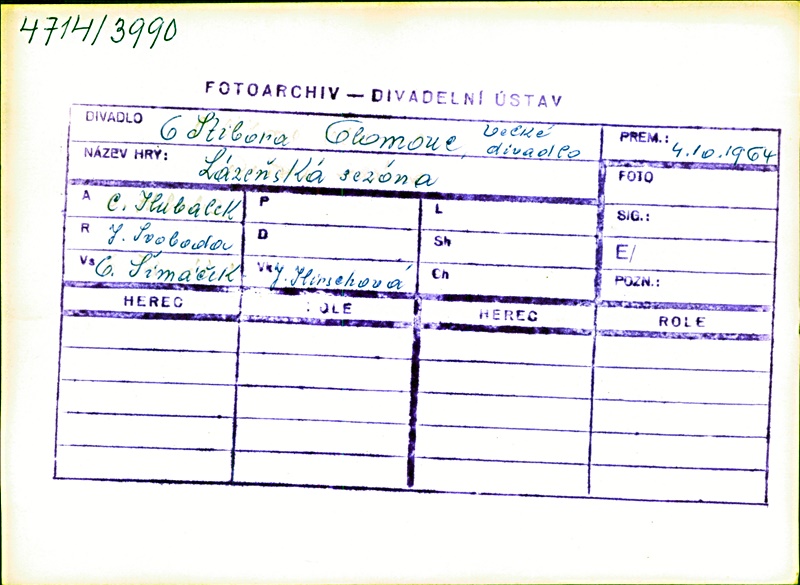 4714/3990
FOTOARCHIV — DIVADELNÍ ÚSTAV
DIVADLO O Stibora Olomouc, Velké divadlo
PREM.: 4.10.1964
NÁZEV HRY: Lázeňská sezóna
FOTO
A C. Hubálek P L SIG.:
R J. Svoboda D Sh E/
Vs O. Šimáček Vk J. Hirschová Ch POZN.:
HEREC ROLE HEREC ROLE